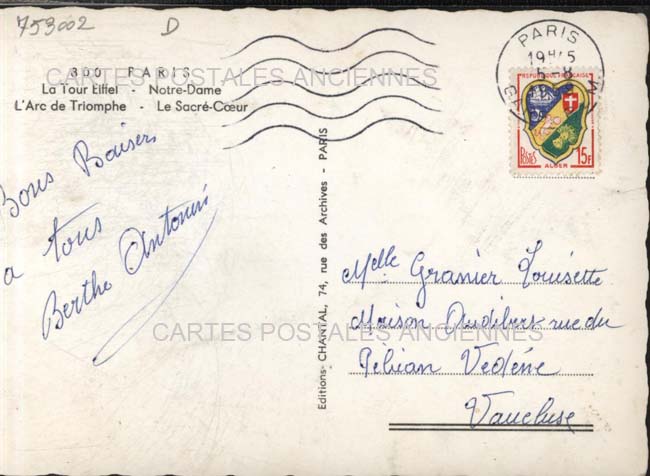 753002 D
CARTES POSTALES ANCIENNES
300 PARIS
La Tour Eiffel - Notre-Dame
L'Arc de Triomphe - Le Sacré-Cœur
Bons Baisers
a tous
Berthe Antonini
Editions-CHANTAL, 74, rue des Archives - PARIS
PARIS
19H45
REPUBLIQUE FRANÇAISE
POSTES
15F
ALGER
Melle Granier Louisette
Maison Audibert rue du
Vedène
Vaucluse
CARTES POSTALES ANCIENNES